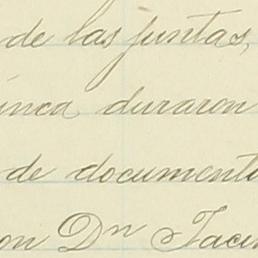 de las juntas,
inca duraron
de documento
on Dn Jacin